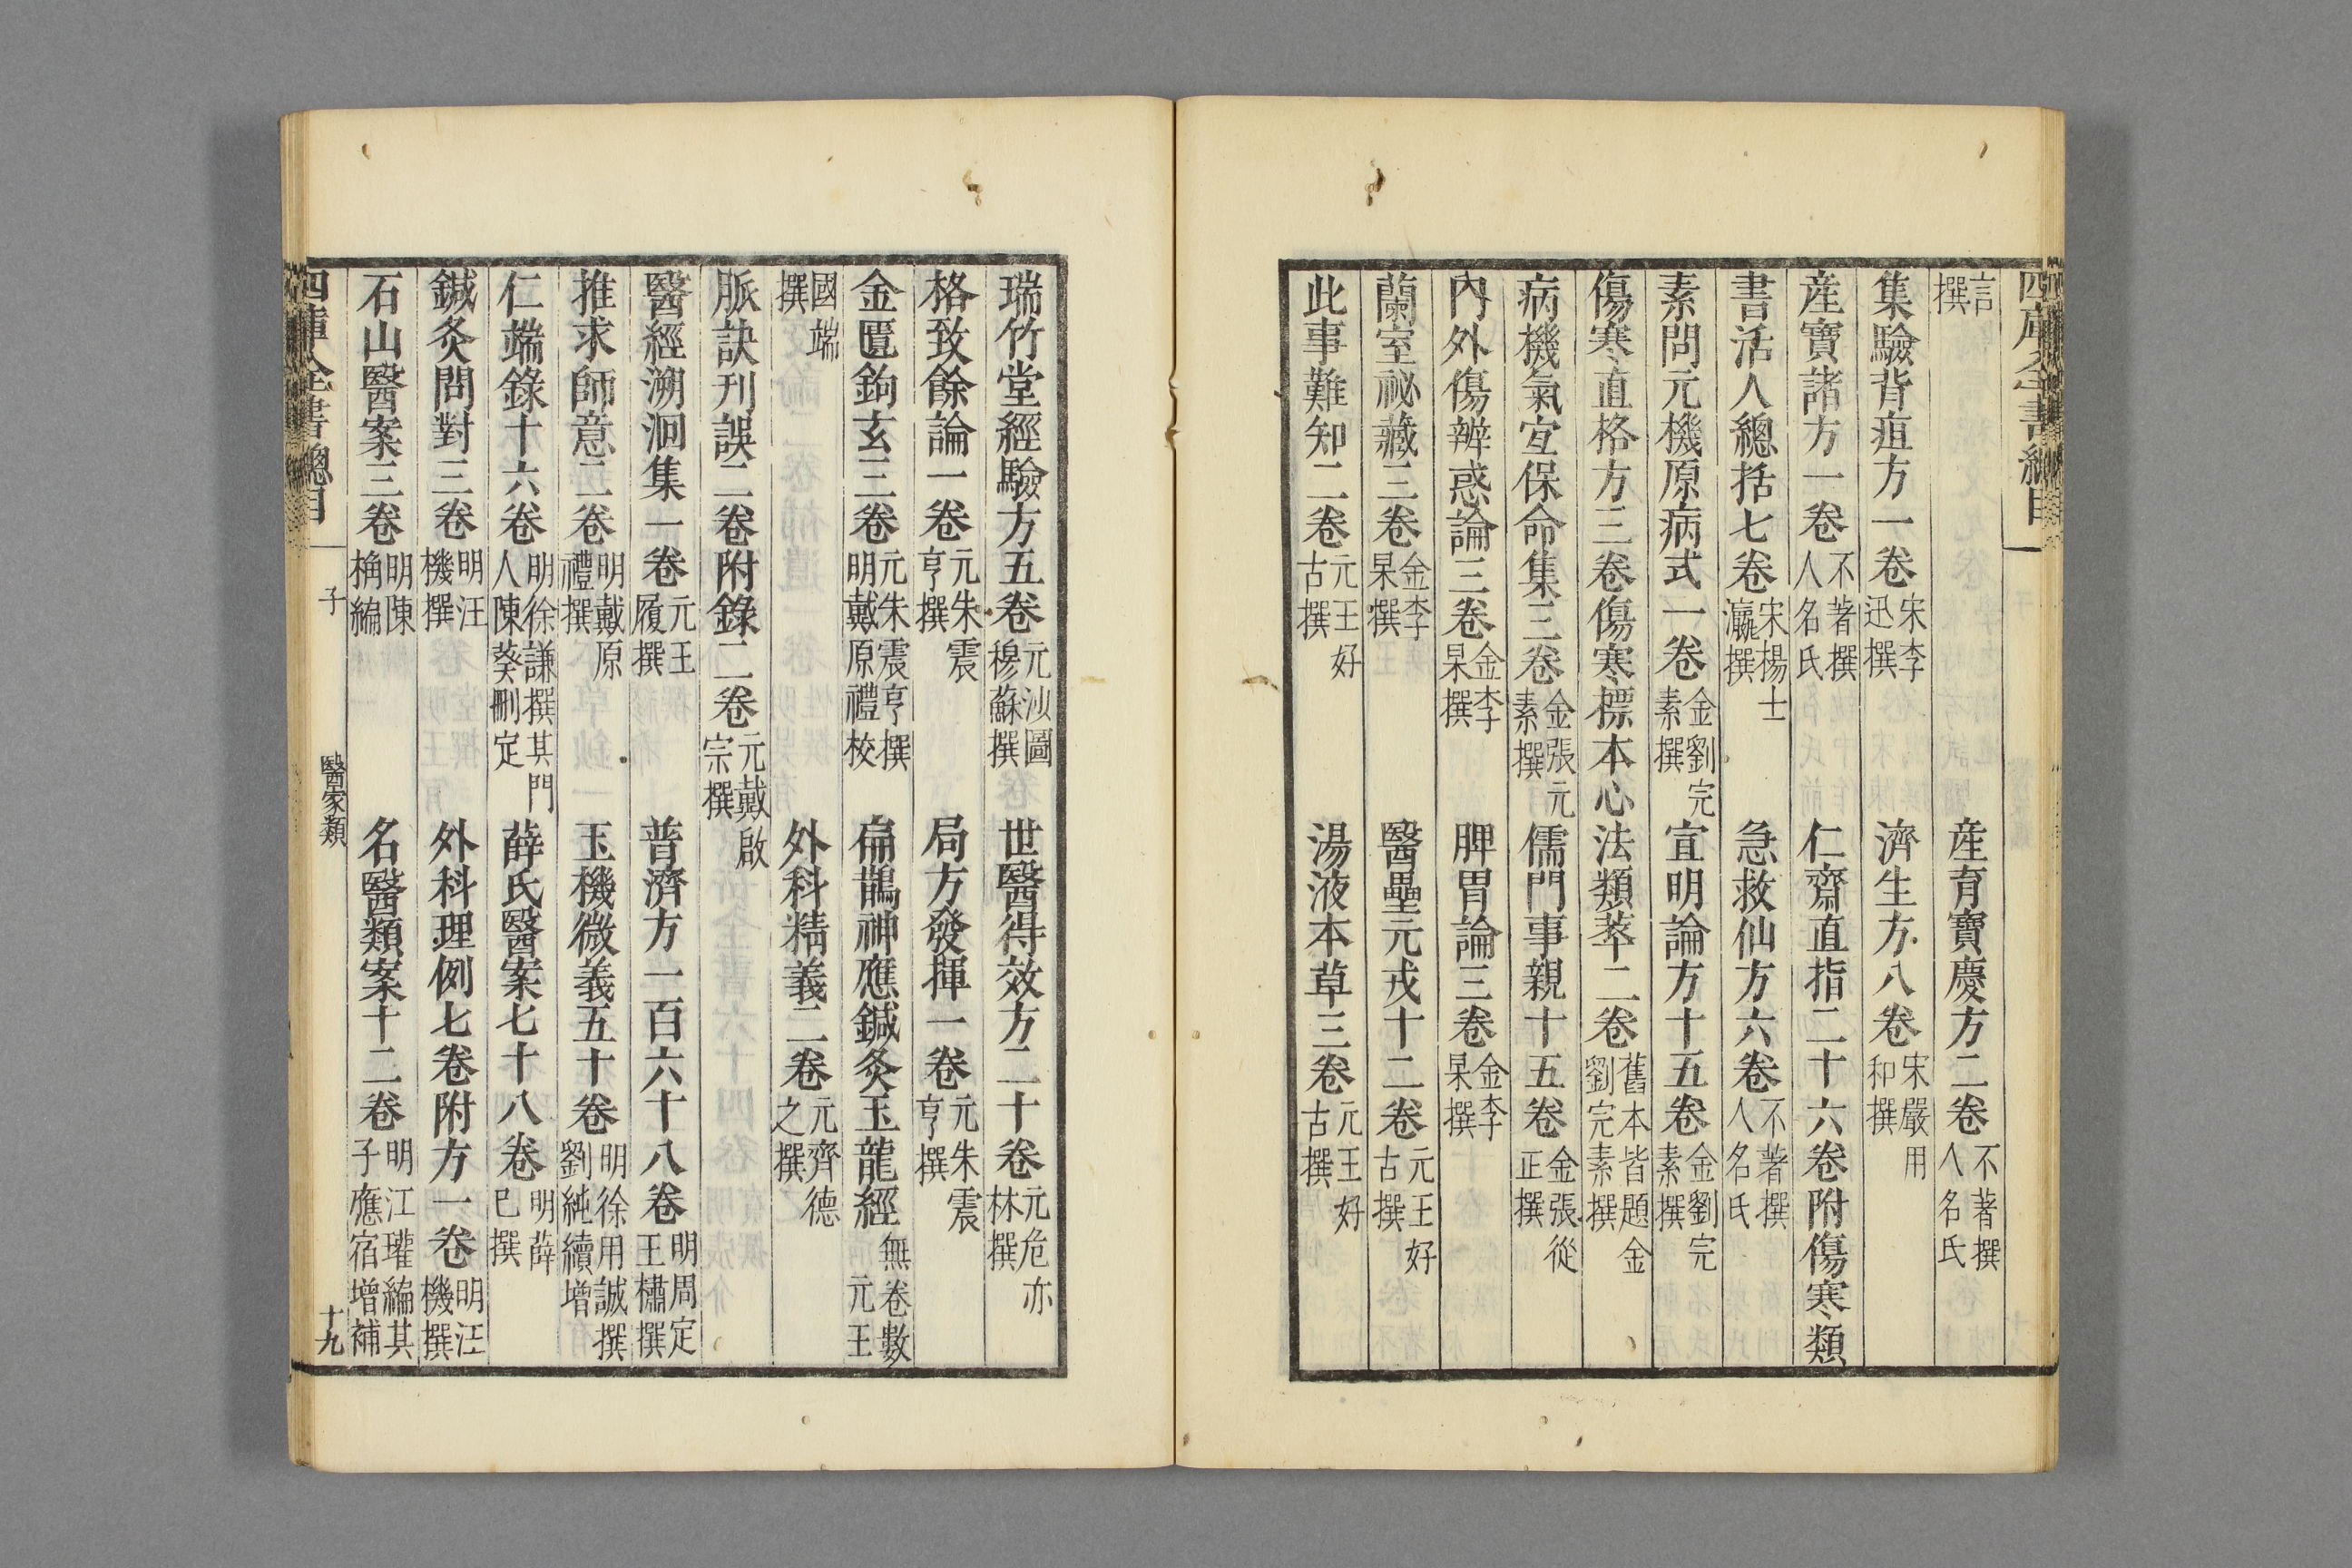 四庫全書總目
言撰 產育寶慶方二卷 不著撰人名氏
集驗背疽方一卷 宋李迅撰 濟生方八卷 宋嚴用和撰
産寶諸方一卷 不著撰人名氏 仁齋直指二十六卷附傷寒類
書活人總括七卷 宋楊士瀛撰 急救仙方六卷 不著撰人名氏
素問元機原病式一卷 金劉完素撰 宣明論方十五卷 金劉完素撰
傷寒直格方三卷傷寒標本心法類萃二卷 舊本皆題金劉完素撰
病機氣宜保命集三卷 金張元素撰 儒門事親十五卷 金張從正撰
內外傷辨惑論三卷 金李杲撰 脾胃論三卷 金李杲撰
蘭室祕藏三卷 金李杲撰 醫壘元戎十二卷 元王好古撰
此事難知二卷 元王好古撰 湯液本草三卷 元王好古撰
瑞竹堂經驗方五卷 元沙圖穆蘇撰 世醫得效方二十卷 元危亦林撰
格致餘論一卷 元朱震亨撰 局方發揮一卷 元朱震亨撰
金匱鉤玄三卷 元朱震亨撰明戴原禮校 扁鵲神應鍼灸玉龍經 無卷數元王
國端撰 外科精義二卷 元齊德之撰
脈訣刊誤二卷附錄二卷 元戴啟宗撰
醫經溯洄集一卷 元王履撰 普濟方一百六十八卷 明周定王橚撰
推求師意二卷 明戴原禮撰 玉機微義五十卷 明徐用誠撰劉純續增
仁端錄十六卷 明徐謙撰其門人陳葵刪定 薛氏醫案七十八卷 明薛己撰
鍼灸問對三卷 明汪機撰 外科理例七卷附方一卷 明汪機撰
石山醫案三卷 明陳桷編 名醫類案十二卷 明江瓘編其子應宿增補
四庫全書總目 子 醫家類 十九